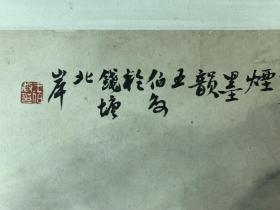 煙墨韻王伯敏於錢塘北岸